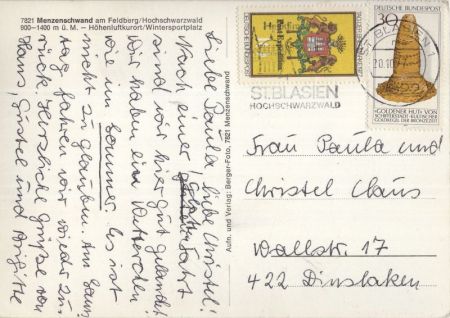 7821 Menzenschwand am Feldberg/Hochschwarzwald
900–1400 m ü. M. – Höhenluftkurort/Wintersportplatz
Liebe Paula, liebe Christel!
Nach einer glatten Fahrt
sind wir hier gut gelandet
Wir haben ein Wetter
wie im Sommer. Es ist
nicht zu glauben. Am Sonn-
tag fahren wir wieder zu-
rück. Herzliche Grüße von
Hans, Gustel und Brigitte
Aufn. und Verlag: Berger-Foto, 7821 Menzenschwand
DEUTSCHE BUNDESPOST
ST. BLASIEN
HOCHSCHWARZWALD
ST. BLASIEN
20.10.
7822
DEUTSCHE BUNDESPOST
30
»GOLDENER HUT« VON
SCHIFFERSTADT·KULTISCHER
GOLDKEGEL DER BRONZEZEIT
Frau Paula und
Christel Claus
Wallstr. 17
422 Dinslaken